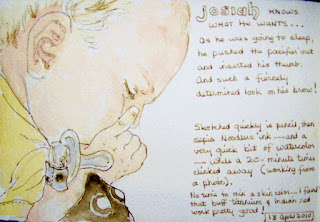 Josiah KNOWS
WHAT HE WANTS...
As he was going to sleep,
he pushed the pacifier out
and inserted his thumb.
And such a fiercely
determined look on his brow!
Sketched quickly in pencil, then
sepia Noodlers ink — and a
very quick bit of watercolor
— while a 20-minute timer
clicked away (working from
a photo).
No time to mix a skin tone... I found
that buff titanium & Indian red
work pretty good!
13 April 2010